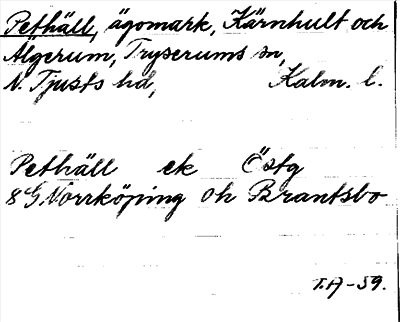 Pethäll, ägomark, Kärnhult och
Älgerum, Tryserums sn,
N. Tjusts hd, Kalm. l.
Pethäll ek Östg
8 G Norrköping Oh Brantsbo
T.A-59.